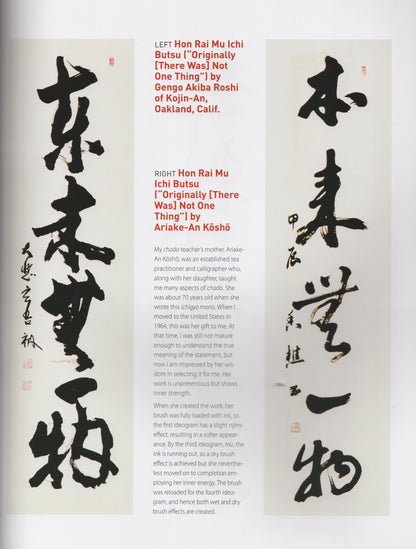 本来無一物
LEFT Hon Rai Mu Ichi
Butsu (“Originally
[There Was] Not
One Thing”) by
Gengo Akiba Roshi
of Kojin-An,
Oakland, Calif.
RIGHT Hon Rai Mu
Ichi Butsu
(“Originally [There
Was] Not One
Thing”) by
Ariake-An Kōshō
My chado teacher’s mother, Ariake-
An Kōshō, was an established tea
practitioner and calligrapher who,
along with her daughter, taught
me many aspects of chado. She
was about 70 years old when she
wrote this ichigyo mono. When I
moved to the United States in
1964, this was her gift to me. At
that time, I was still not mature
enough to understand the true
meaning of the statement, but
now I am impressed by her wis-
dom in selecting it for me. Her
work is unpretentious but shows
inner strength.
When she created the work, her
brush was fully loaded with ink, so
the first ideogram has a slight nijimi
effect, resulting in a softer appear-
ance. By the third ideogram, mu, the
ink is running out, so a dry brush
effect is achieved but she neverthe-
less moved on to completion em-
ploying her inner energy. The brush
was reloaded for the fourth ideo-
gram, and hence both wet and dry
brush effects are created.
本来無一物
甲辰